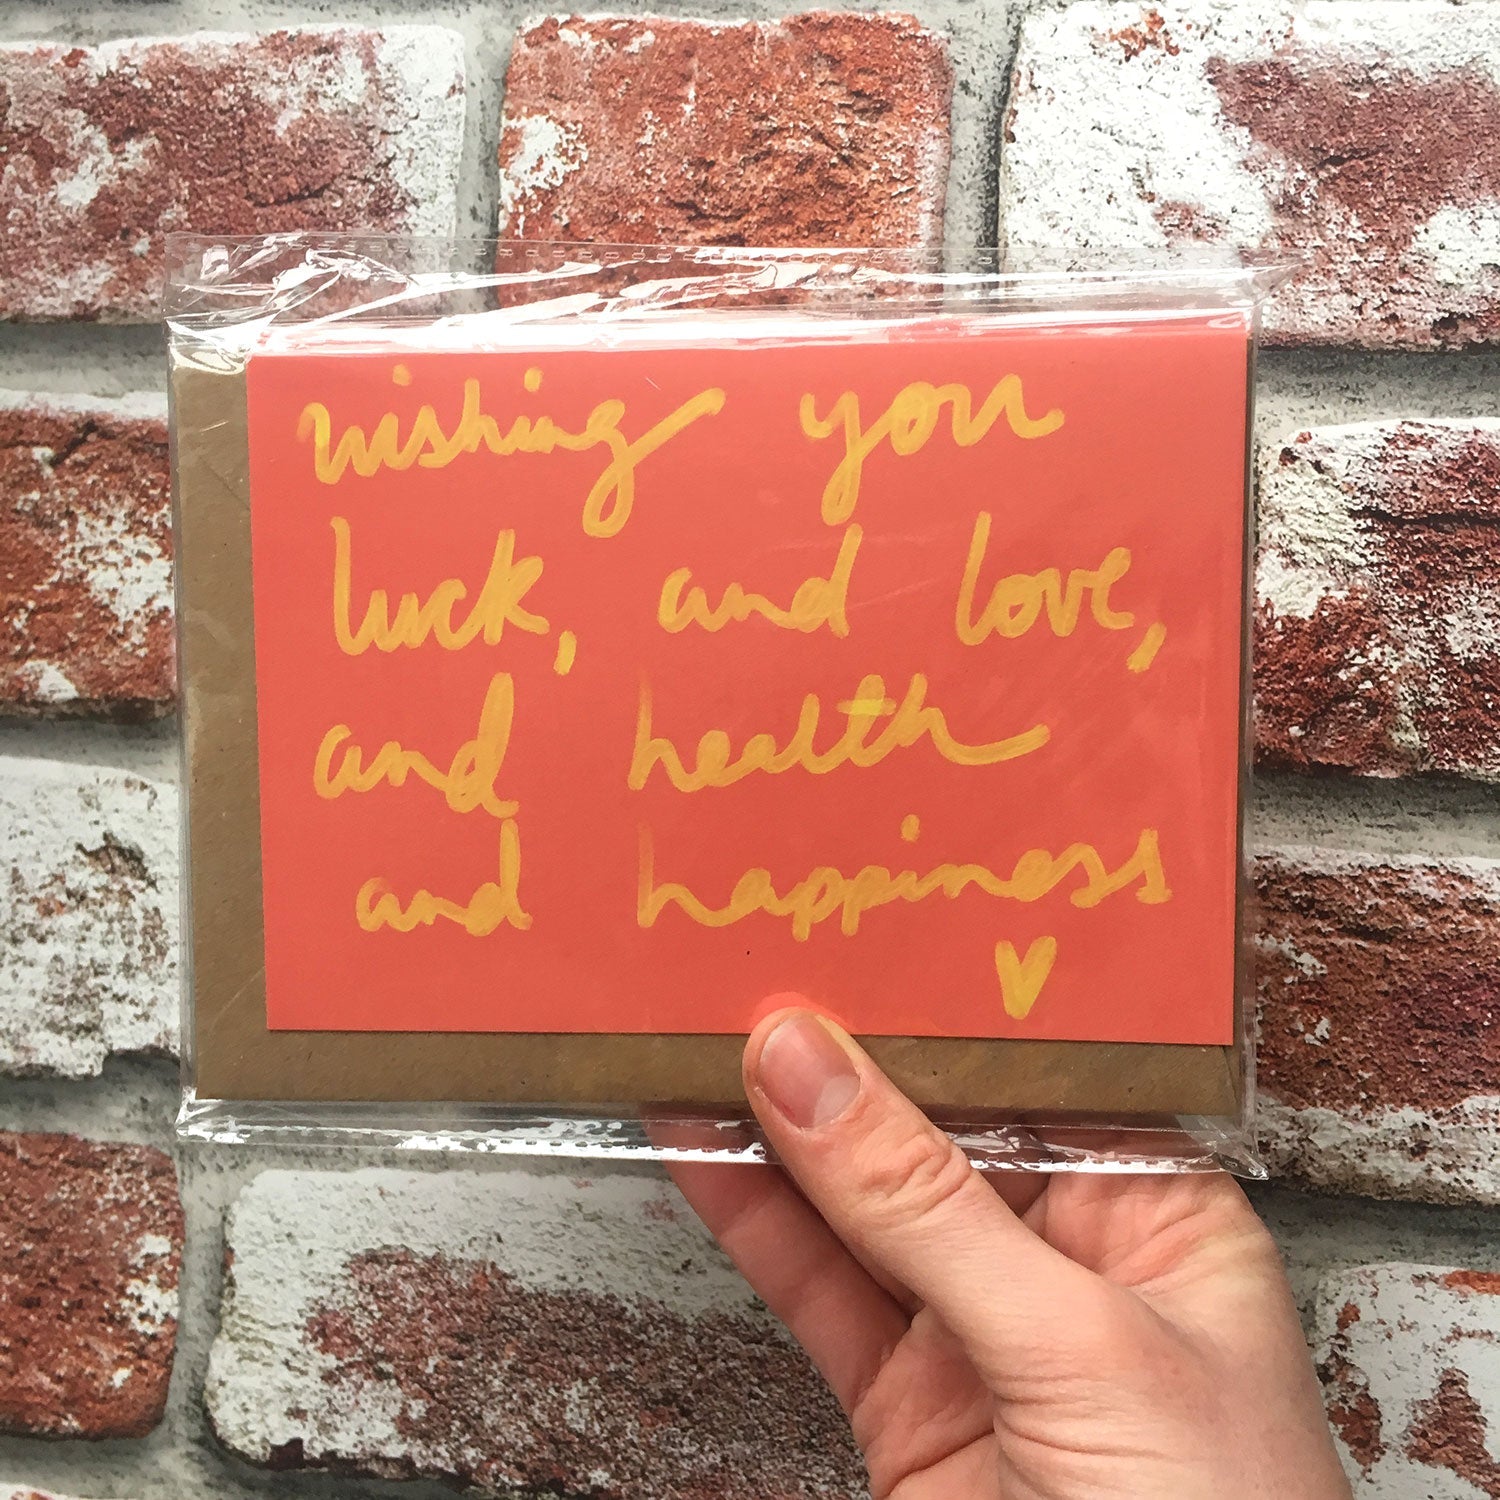 wishing you
luck, and love,
and health
and happiness